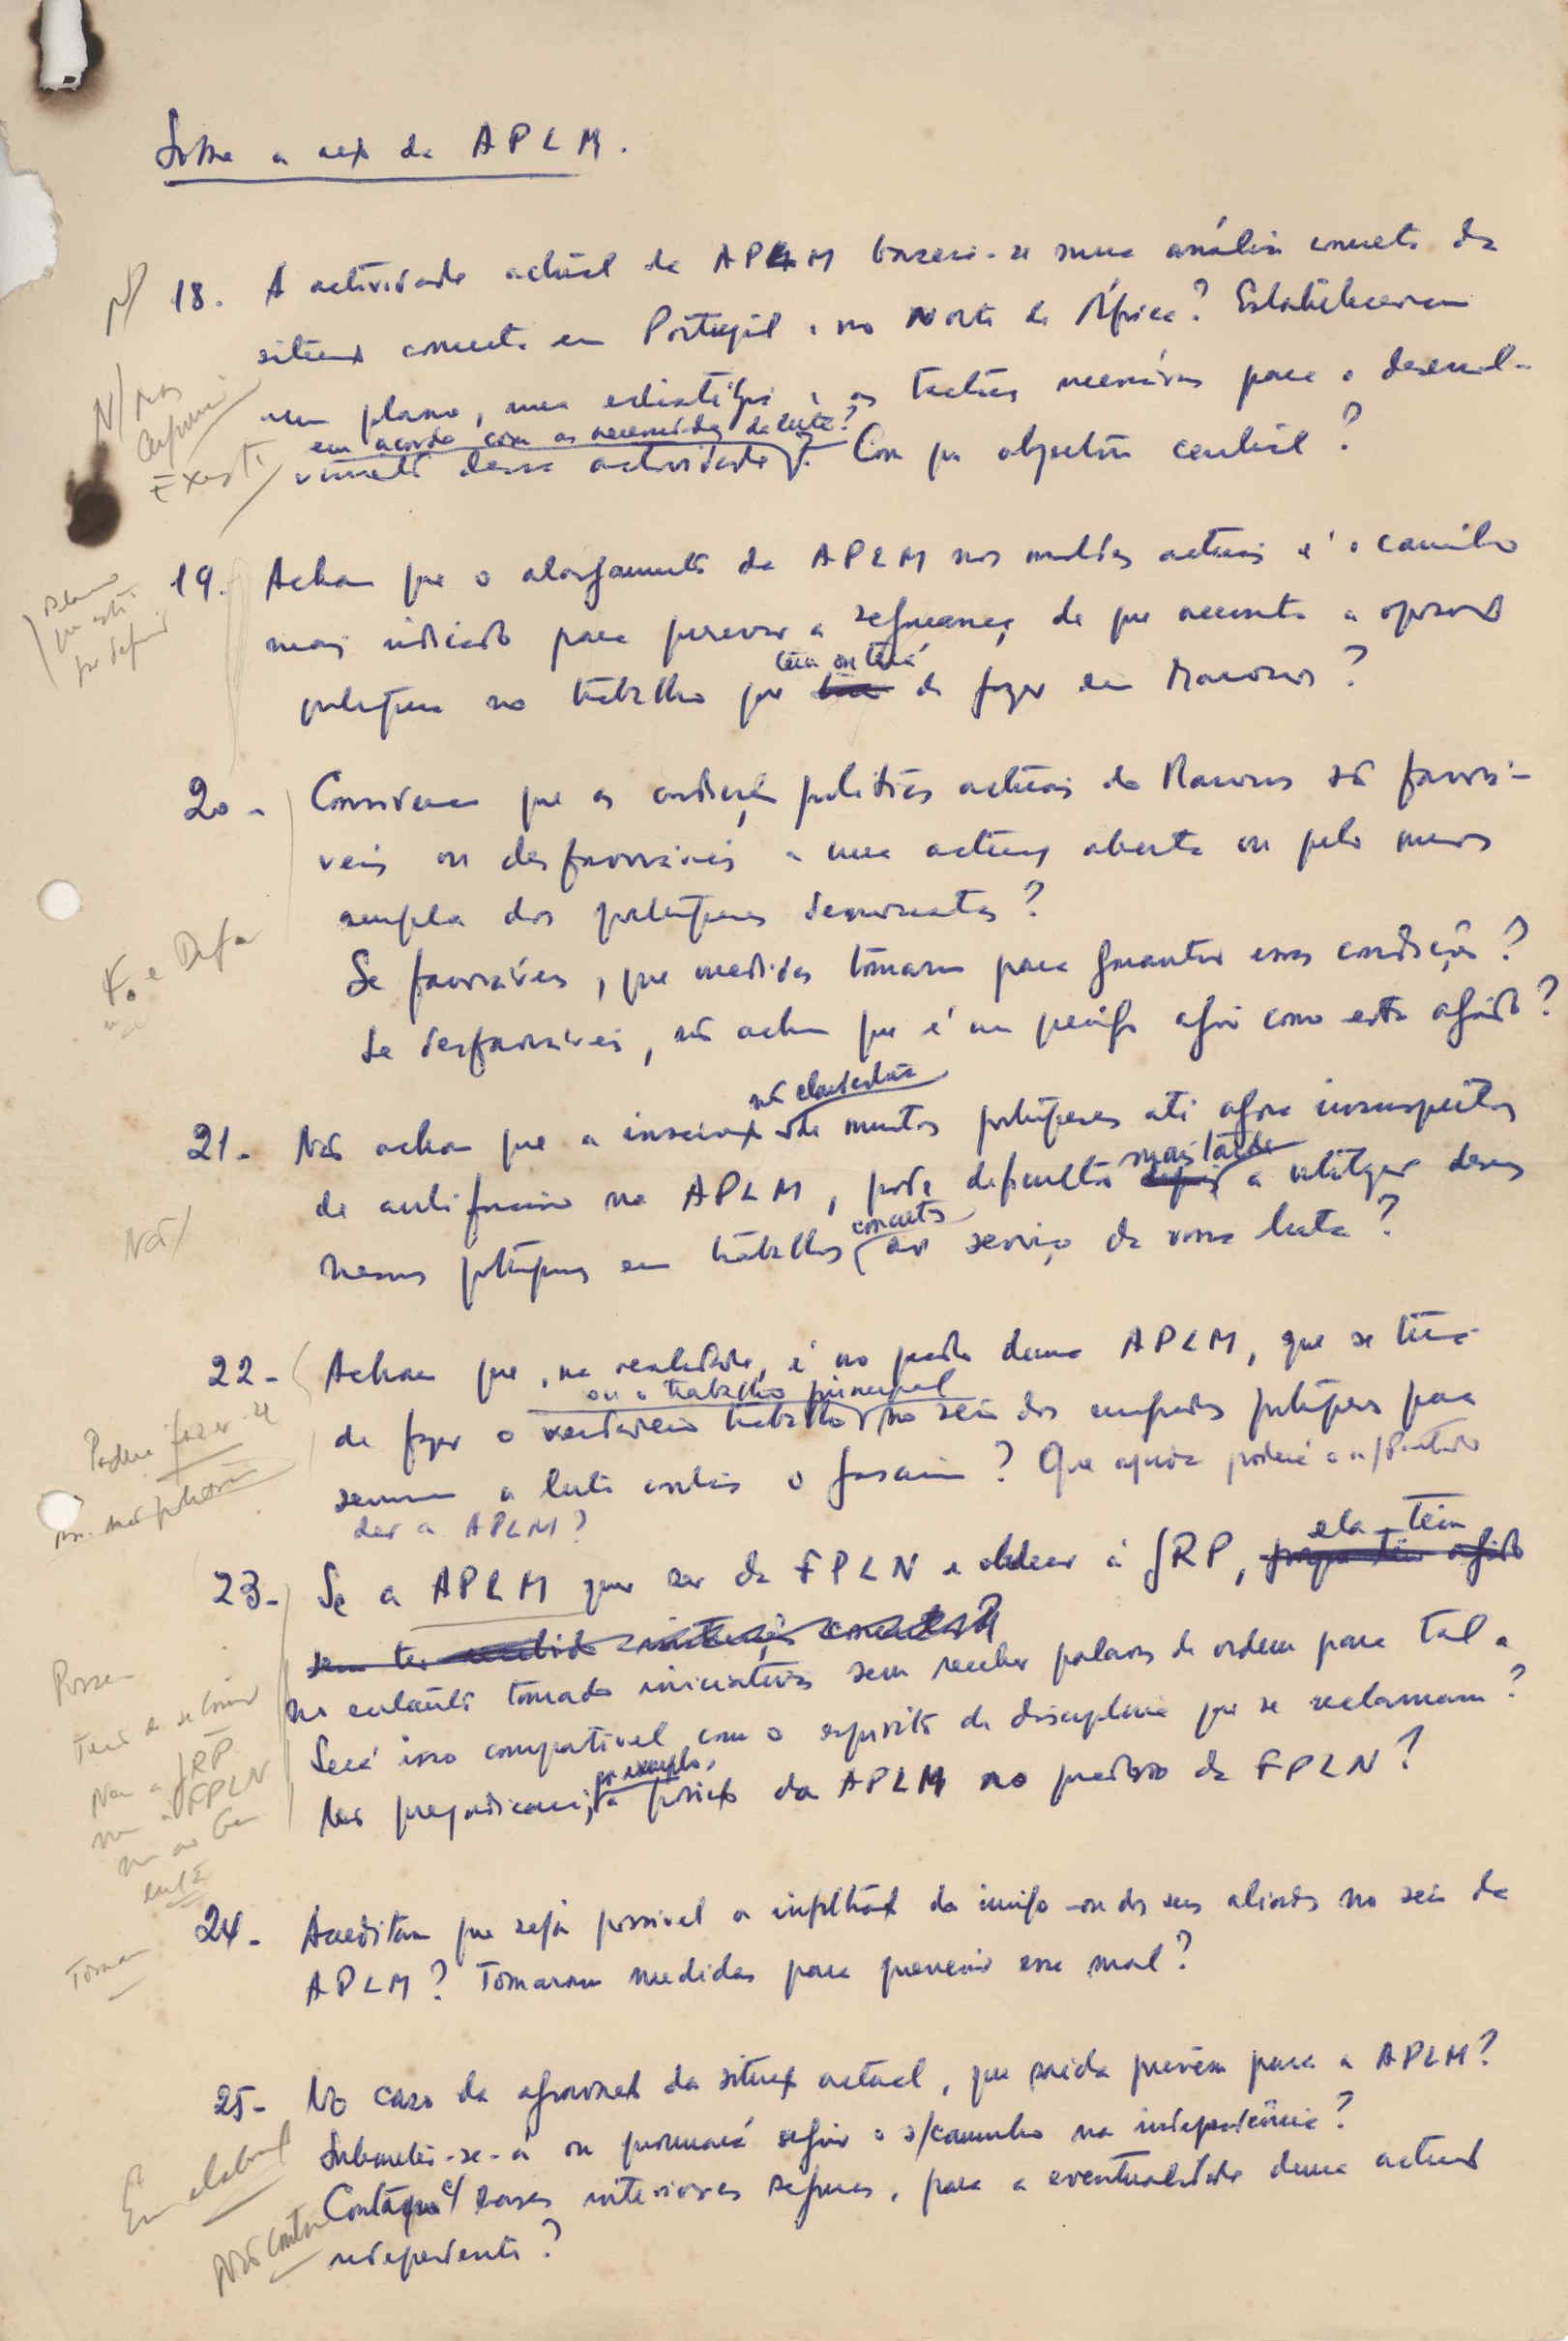 Sobre a acx da APLM.
18. A actividade actual da APLM baseia-se numa análise concreta da
situax concreta em Portugal e no Norte de África? Estabeleceram
um plano, uma estratégia e as tácticas necessárias para o desenvol-
em acordo com as necessidades da luta?
vimento dessa actividade? Com que objectivo central?
N/
N/ mas
Existe
19. Acham que o alargamento da APLM nos moldes actuais é o caminho
mais indicado para preservar a segurança de que necessita a oposx
tem ou terá
portuguesa no trabalho que de fazer em Marrocos?
Plano
que está
por definir
20- Consideram que as condições políticas actuais de Marrocos são favorá-
veis ou desfavoráveis a uma actuax aberta ou pelo menos
ampla dos portugueses democratas?
Se favoráveis, que medidas tomaram para garantir essas condições?
Se desfavoráveis, não acham que é um perigo agir como estão agindo?
F. e Desfa
não clandestina
21- Não acham que a inscrix de muitos portugueses até agora insuspeitos
mais tarde
de antifascismo na APLM, pode dificultar depois a utilizar desses
concretos
mesmos portugueses em trabalhos ao serviço da nossa luta?
Não/
22- Acham que, na realidade, é no quadro duma APLM, que se terá
ou o trabalho principal
de fazer o verdadeiro trabalho no seio dos emigrados portugueses para
servirem a luta contra o fascismo? Que ajuda poderá a
dar a APLM?
Podem fazer-se
23- Se a APLM quer ser da FPLN e obedecer à JRP, ela tem
sem ter recebido instruções concretas?
no entanto tomado iniciativas sem receber palavras de ordem para tal.
Será isso compatível com o espírito de disciplina que se reclamam?
por exemplo,
Não prejudicará, a posix da APLM no quadro da FPLN?
Nem a JRP
nem a FPLN
24- Acreditam que seja possível a infiltrax do inimigo ou dos seus aliados no seio da
APLM? Tomaram medidas para prevenir esse mal?
Tomaram
25- No caso da agravax da situax actual, que saída prevêem para a APLM?
Submeter-se-á ou procurará seguir o s/caminho na independência?
Contam c/ bases interiores seguras, para a eventualidade duma actuax
independente?
Não contam